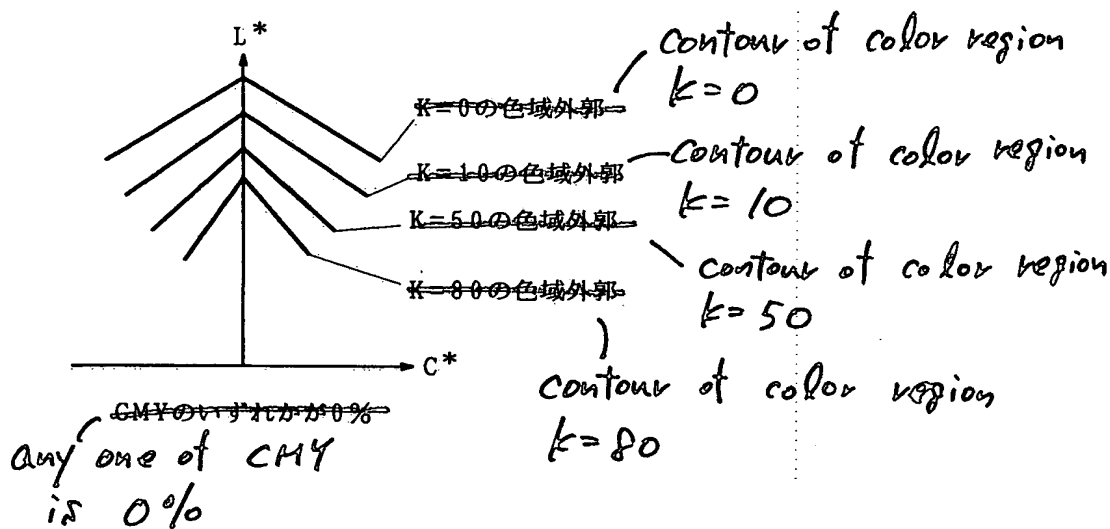 L*
contour of color region
K=0の色域外郭
k=0
K=10の色域外郭
contour of color region
k=10
K=50の色域外郭
contour of color region
k=50
K=80の色域外郭
contour of color region
k=80
C*
CMYのいずれかが0%
any one of CMY
is 0%